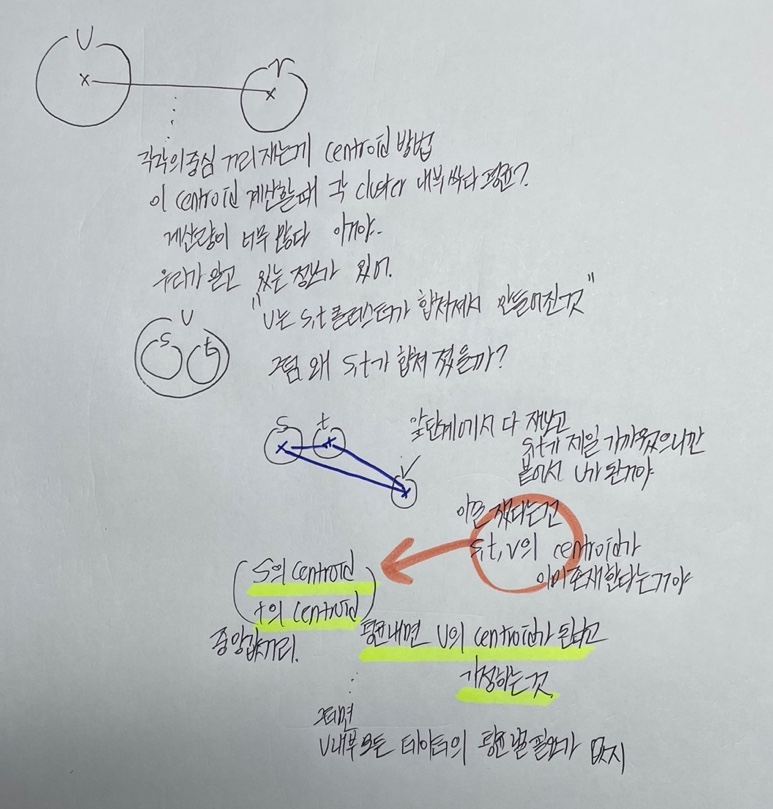 U
v
각각의 중심 거리 재는게 centroid 방법
이 centroid 계산할때 각 cluster 내부 싹다 평균?
계산량이 너무 많다 이거야.
우리가 알고 있는 정보가 있어.
"U는 s,t 클러스터가 합쳐져서 만들어진것"
U
s t
그럼 왜 s,t가 합쳐 졌을까?
s t
v
앞단계에서 다 재보고
s,t가 제일 가까웠으니까
붙어서 U가 된거야
이를 쟀다는건
s,t,v의 centroid가
이미 존재한다는거야
s의 centroid
t의 centroid
중앙값끼리.
평균내면 U의 centroid가 된다고
가정하는것.
그러면
U내부 모든 데이터의 평균 낼 필요가 없지